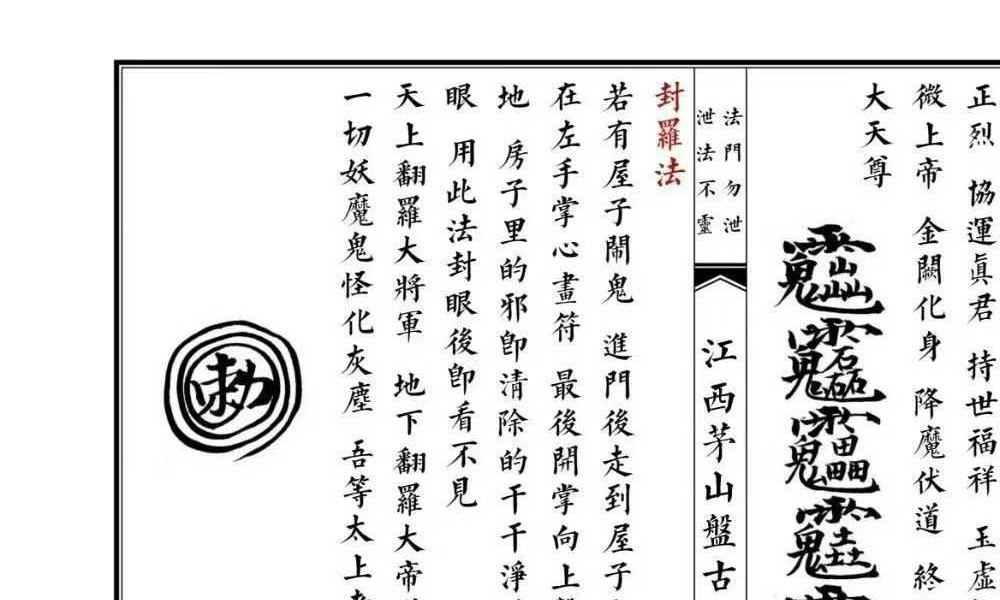 正烈　協運眞君　持世福祥　玉虛
微上帝　金闕化身　降魔伏道　終
大天尊
法門勿泄
泄法不靈
江西茅山盤古
封羅法
若有屋子鬧鬼　進門後走到屋子
在左手掌心畫符　最後開掌向上
地　房子里的邪卽清除的干干淨
眼　用此法封眼後卽看不見
天上翻羅大將軍　地下翻羅大帝
一切妖魔鬼怪化灰塵　吾等太上
勅